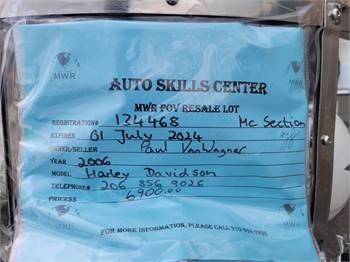 MWR
AUTO SKILLS CENTER
MWR
MWR POV RESALE LOT
REGISTRATION# 134468 Mc Section
EXPIRES 01 July 2024
OWNER/SELLER Paul VanWagner
YEAR 2006
MODEL Harley Davidson
TELEPHONE# 206 856 9026
PRICE$$ 6900.00
MWR
MWR
FOR MORE INFORMATION, PLEASE CALL